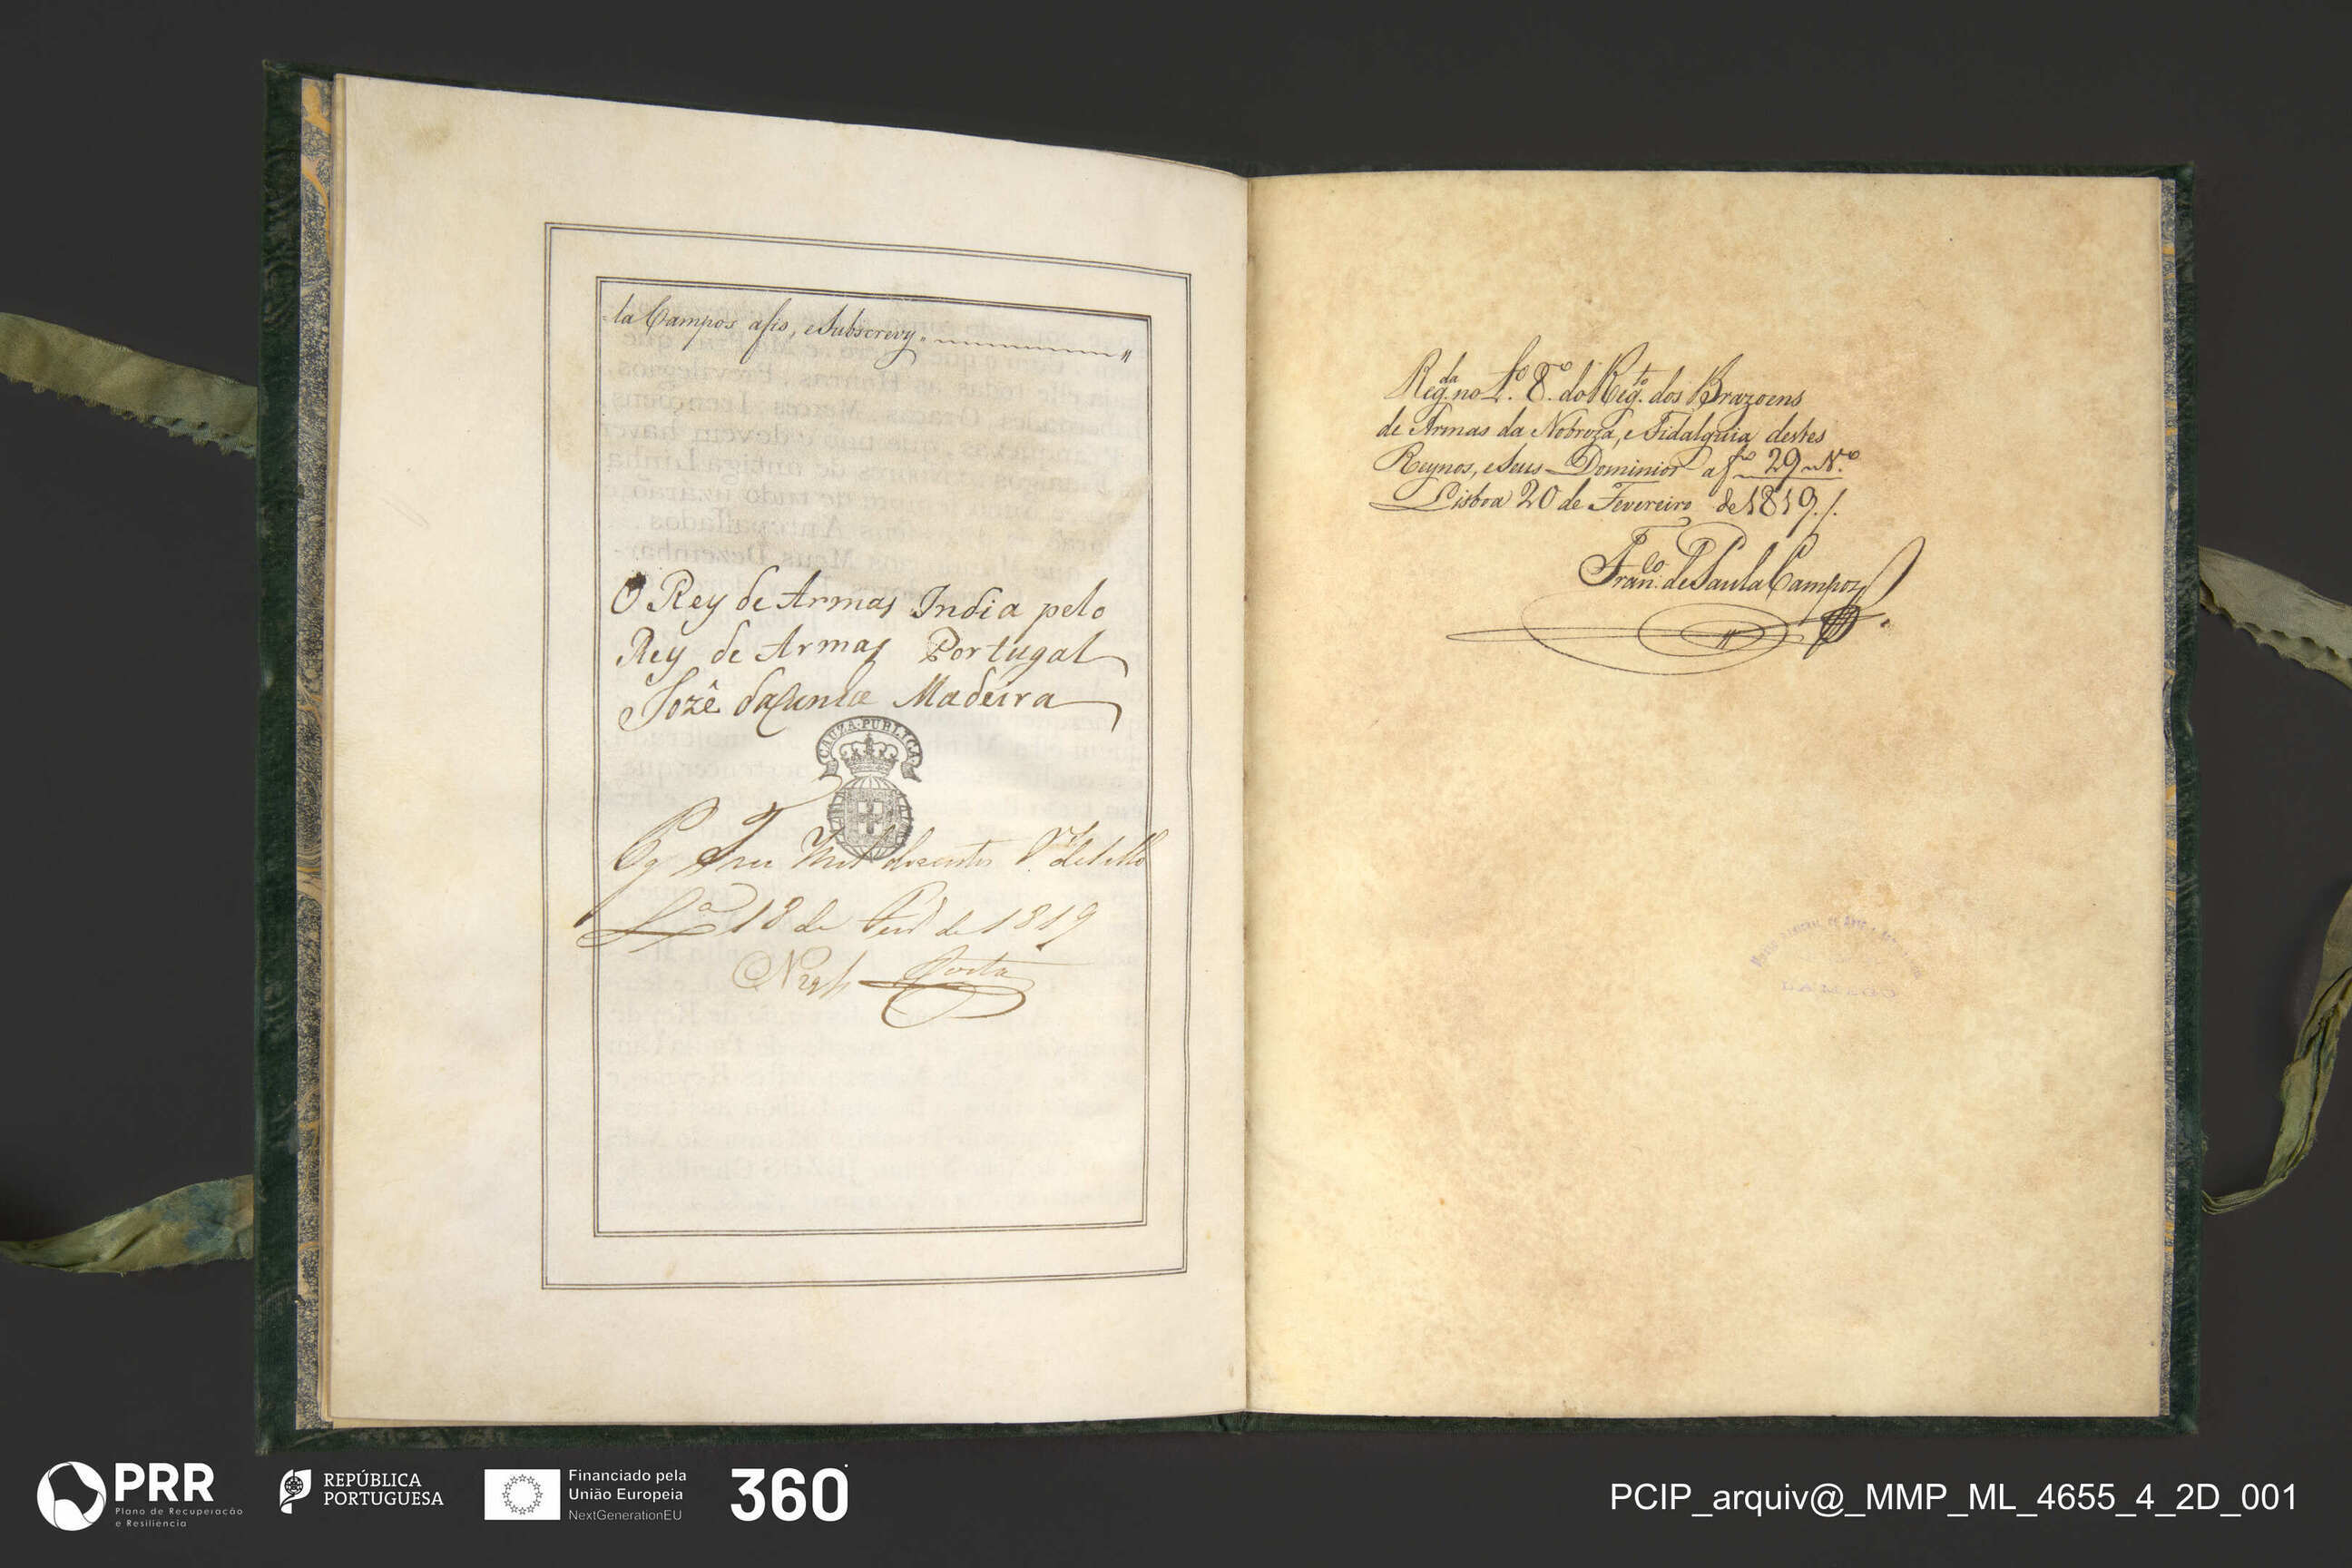 -la Campos a fis, e Subscrevy.
O Rey de Armas India pelo
Rey de Armas Portugal
Jozê da Cunha Madeira
CAUZA PUBLICA
Pg Trez Mil duzentos de sello
Lxa 18 de Fevro de 1819
Costa
Regda no Lo. 8o. do Regto. dos Brazoens
de Armas da Nobreza, e Fidalguia destes
Reynos, e Seus Dominios a fo 29 Vo
Lisboa 20 de Fevereiro de 1819./.
Franco. de Paula Campos
PRR
Plano de Recuperação
e Resiliência
REPÚBLICA
PORTUGUESA
Financiado pela
União Europeia
NextGenerationEU
360
PCIP_arquiv@_MMP_ML_4655_4_2D_001